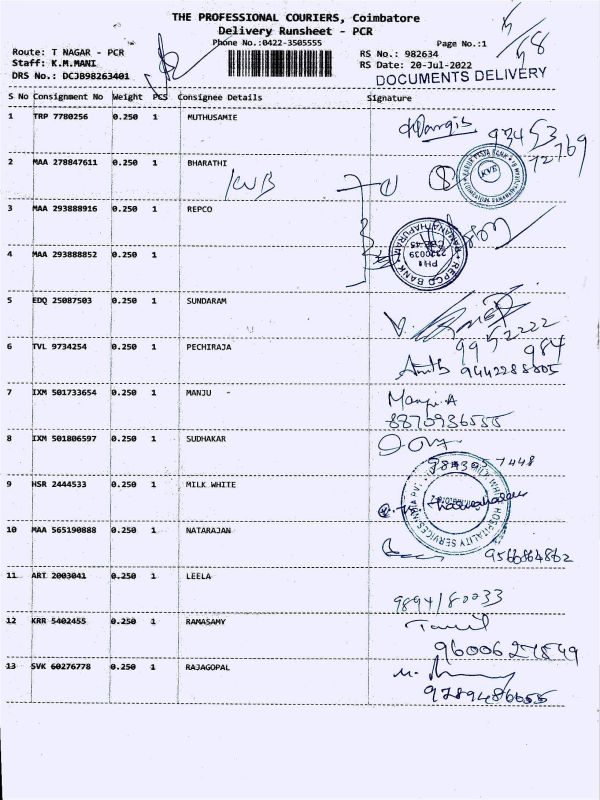 THE PROFESSIONAL COURIERS, Coimbatore
Delivery Runsheet - PCR
Phone No.:0422-3505555
Page No.:1
Route: T NAGAR - PCR
RS No.: 982634
Staff: K.M.MANI
RS Date: 20-Jul-2022
DRS No.: DCJB98263401
DOCUMENTS DELIVERY
S No Consignment No Weight PCS Consignee Details Signature
1 TRP 7780256 0.250 1 MUTHUSAMIE
2 MAA 278847611 0.250 1 BHARATHI
KVB
KVB
3 MAA 293888916 0.250 1 REPCO
REPCO BANK
RAMANATHAPURAM
CBE-45
PH: 2320039
4 MAA 293888852 0.250 1
5 EDQ 25087503 0.250 1 SUNDARAM
9952222
984
6 TVL 9734254 0.250 1 PECHIRAJA
9442288805
7 IXM 501733654 0.250 1 MANJU -
Manju.A
8870936555
8 IXM 501806597 0.250 1 SUDHAKAR
9 HSR 2444533 0.250 1 MILK WHITE
MILK WHITE HOSPITALITY SERVICES INDIA PVT
10 MAA 565190888 0.250 1 NATARAJAN
9566864862
11 ART 2003041 0.250 1 LEELA
9894180033
12 KRR 5402455 0.250 1 RAMASAMY
Tamil
9600627849
13 SVK 60276778 0.250 1 RAJAGOPAL
9789486655